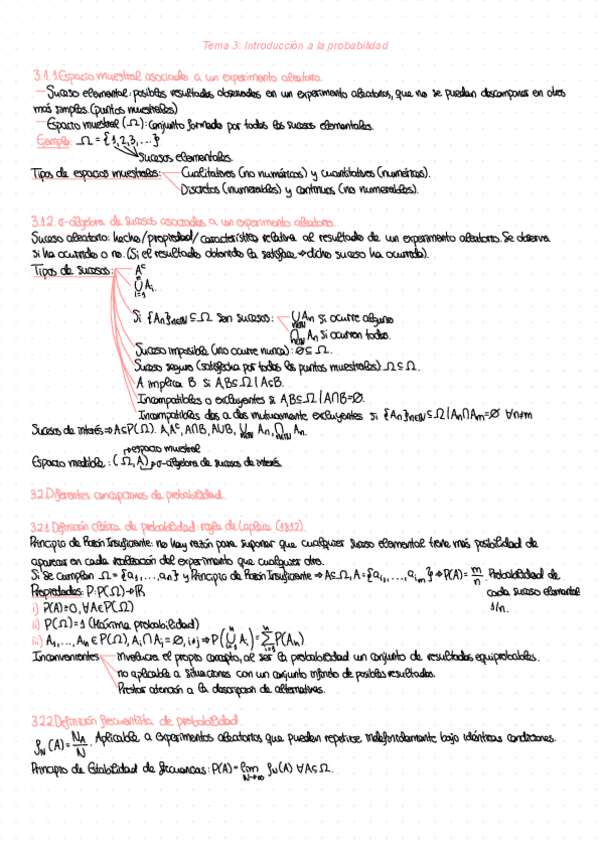 Tema 3: Introducción a la probabilidad
3.1.1 Espacio muestral asociado a un experimento aleatorio.
Suceso elemental: posibles resultados observados en un experimento aleatorios, que no se puedan descomponer en otros
más simples. (puntos muestrales)
Espacio muestral (Ω): Conjunto formado por todos los sucesos elementales.
Ejemplo: Ω = {1,2,3,...}
Sucesos elementales.
Tipos de espacios muestrales: Cualitativos (no numéricos) y cuantitativos (numéricos).
Discretos (numerables) y continuos (no numerables).
3.1.2. σ-álgebra de sucesos asociados a un experimento aleatorio.
Suceso aleatorio: hecho/propiedad/característica relativa al resultado de un experimento aleatorio. Se observa
si ha ocurrido o no. (Si el resultado obtenido la satisface ⇒ dicho suceso ha ocurrido).
Tipos de sucesos: Aᶜ
⋃ⁿᵢ₌₁ Aᵢ.
Si {An}n∈ℕ ⊆ Ω son sucesos: ⋃n∈ℕ An si ocurre alguno
⋂n∈ℕ An si ocurren todos.
Suceso imposible (no ocurre nunca): ∅ ⊆ Ω.
Suceso seguro (satisfecho por todos los puntos muestrales) Ω ⊆ Ω.
A implica B si A,B ⊆ Ω | A ⊆ B.
Incompatibles o excluyentes si A,B ⊆ Ω | A∩B=∅.
Incompatibles dos a dos mutuamente excluyentes si {An} n∈ℕ ⊆ Ω | An∩Am=∅ ∀n≠m
Sucesos de interés ⇒ A ⊆ P(Ω). A, Aᶜ, A∩B, A∪B, ⋃n∈ℕ An, ⋂n∈ℕ An.
espacio muestral
Espacio medible: (Ω, A) → σ-álgebra de sucesos de interés.
3.2. Diferentes concepciones de probabilidad.
3.2.1. Definición clásica de probabilidad: regla de Laplace (1812).
Principio de Razón Insuficiente: no hay razón para suponer que cualquier suceso elemental tiene más posibilidad de
aparecer en cada realización del experimento que cualquier otro.
Si se cumplen Ω = {a₁,...,an} y Principio de Razón Insuficiente ⇒ A ⊆ Ω, A = {ai₁,...,aim} ⇒ P(A) = m/n. Probabilidad de
cada suceso elemental
1/n.
Propiedades: P: P(Ω) → ℝ
i) P(A) ≥ 0, ∀A ∈ P(Ω)
ii) P(Ω) = 1 (Máxima probabilidad)
iii) A₁,...,An ∈ P(Ω), Ai∩Aj = ∅, i≠j ⇒ P(⋃ⁿᵢ₌₁ Ai) = ∑ⁿᵢ₌₁ P(An)
Inconvenientes involucra el propio concepto, al ser la probabilidad un conjunto de resultados equiprobables.
no aplicable a situaciones con un conjunto infinito de posibles resultados.
Prestar atención a la descripción de alternativas.
3.2.2 Definición frecuentista de probabilidad
fN(A) = NA/N. Aplicable a experimentos aleatorios que pueden repetirse indefinidamente bajo idénticas condiciones.
Principio de Estabilidad de frecuencias: P(A) = lim N→∞ fN(A) ∀A ⊆ Ω.